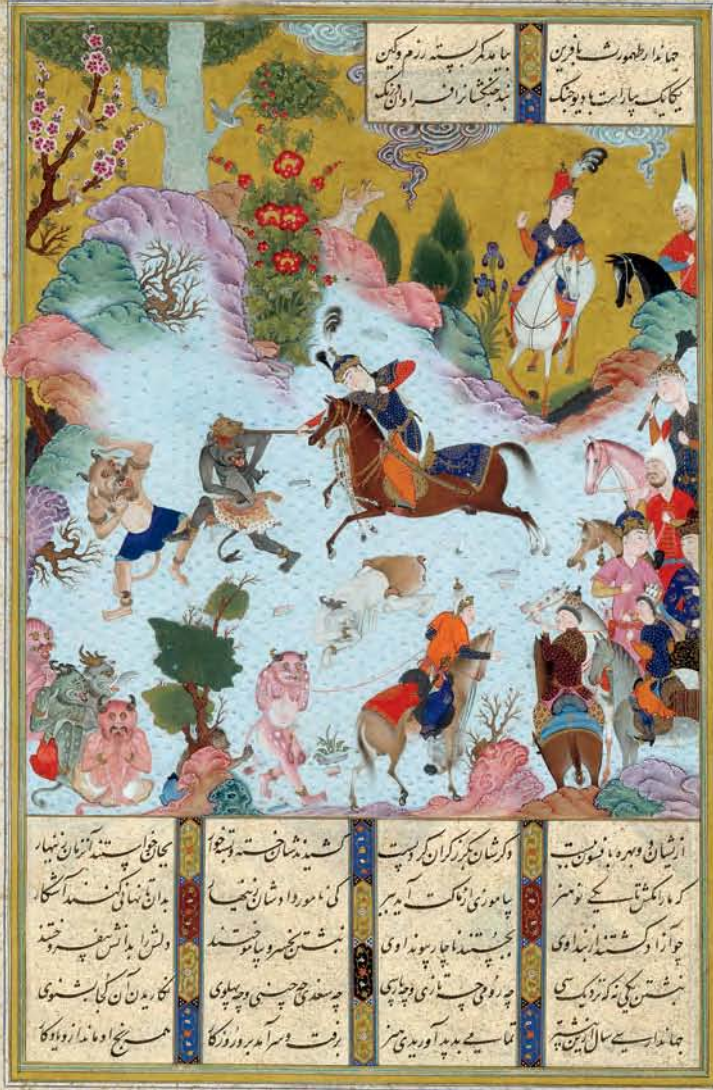 جهاندار طهمورث بافرین بیامد کمر بسته رزم و کین
یکایک بیاراست با دیو جنگ نبد جنگشانرا فراوان درنگ
ازیشان دو بهره بافسون ببست دگرشان بگرز گران کرد پست کشیدندشان خسته و بسته خوار بجان خواستند آنزمان زینهار
که ما را مکش تا یکی نو هنر بیاموزی از ماکت آید ببر کی نامور دادشان زینهار بدان تا نهانی کنند آشکار
چو آزاد گشتند از بند اوی بجستند ناچار پیوند اوی نبشتن بخسرو بیاموختند دلش را بدانش بیفروختند
نبشتن یکی نه که نزدیک سی چه رومی چه تازی و چه پارسی چه سغدی چه چینی و چه پهلوی نگاریدن آن کجا بشنوی
جهاندار سی سال ازین بیشتر تمامی پدید آوریدی هنر برفت و سر آمد برو روزگار همه رنج او ماند ازو یادگار